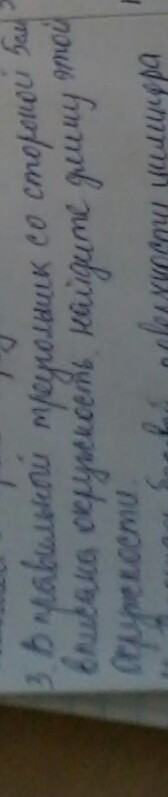 3 В правильной треугольник со стороной 5см
вписана окружность. найдите длину этой
окружности.
боковой поверхности цилиндра